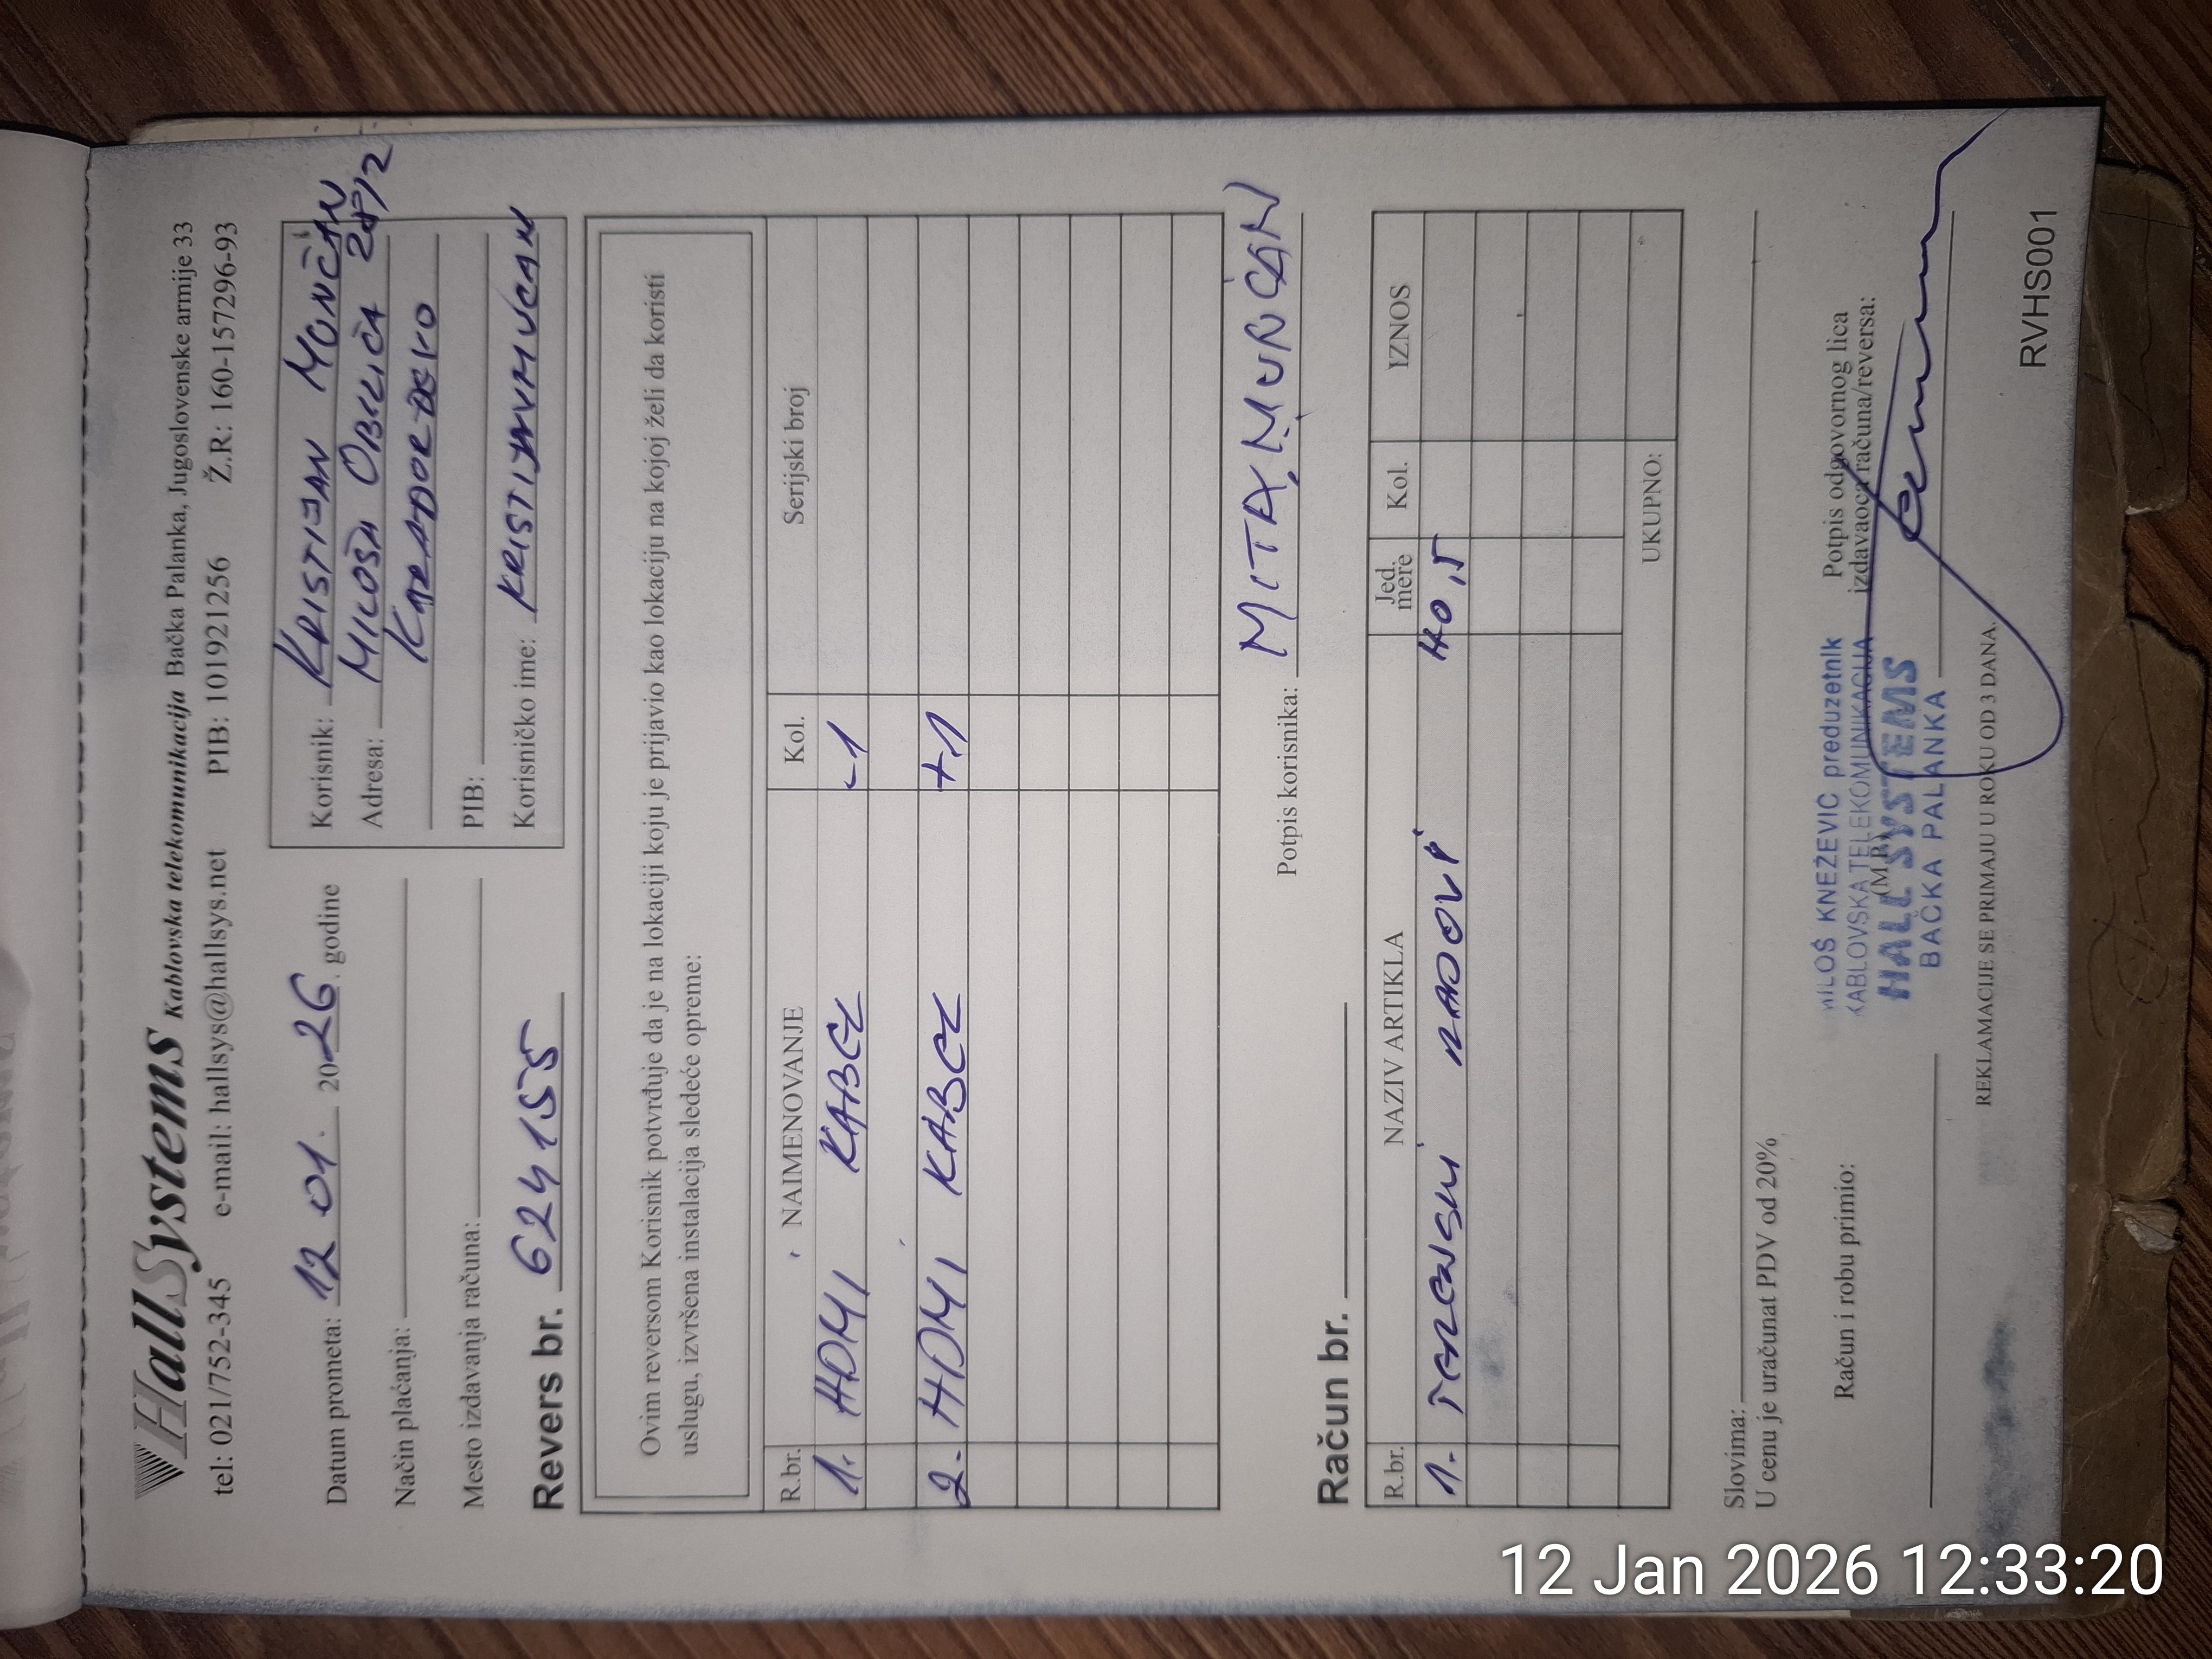 HallSystems Kablovska telekomunikacija Bačka Palanka, Jugoslovenske armije 33
tel: 021/752-345 e-mail: hallsys@hallsys.net PIB: 101921256 Ž.R: 160-157296-93
Datum prometa: 12 01. 2026. godine
Način plaćanja:
Mesto izdavanja računa:
Revers br. 624155
Korisnik: KRISTIJAN MONČAN
Adresa: MILOŠA OBILIĆA
PIB:
Korisničko ime:
Ovim reversom Korisnik potvrđuje da je na lokaciji koju je prijavio kao lokaciju na kojoj želi da koristi
uslugu, izvršena instalacija sledeće opreme:
R.br. NAIMENOVANJE Kol. Serijski broj
1. HDMI KABEL -1
2. HDMI KABEL +1
Potpis korisnika: MITRA MUNĆAN
Račun br.
R.br. NAZIV ARTIKLA Jed. mere Kol. IZNOS
1. TERENSKI RADOVI H0,5
UKUPNO:
Slovima:
U cenu je uračunat PDV od 20%
Račun i robu primio:
(M.P.)
Potpis odgovornog lica
izdavaoca računa/reversa:
MILOŠ KNEŽEVIĆ preduzetnik
KABLOVSKA TELEKOMUNIKACIJA
HALL SYSTEMS
BAČKA PALANKA
REKLAMACIJE SE PRIMAJU U ROKU OD 3 DANA.
RVHS001
12 Jan 2026 12:33:20